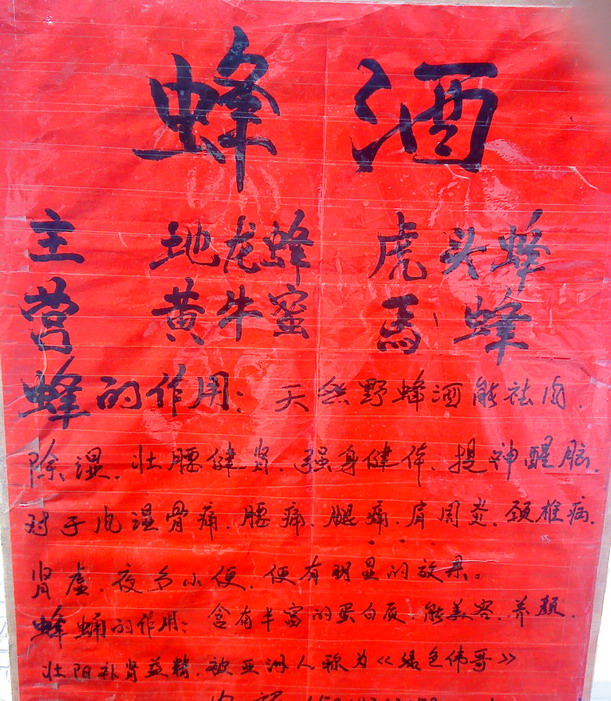 蜂酒
主 地龙蜂 虎头蜂
营 黄牛蜜 马蜂
蜂的作用：天然野蜂酒能祛风、
除湿、壮腰健肾、强身健体、提神醒脑、
对于风湿骨痛、腰痛、腿痛、肩周炎、颈椎病、
肾虚、夜多小便、便有明显的效果。
蜂蛹的作用：含有丰富的蛋白质、能美容、养颜、
壮阳补肾益精、被亚洲人称为《绿色伟哥》